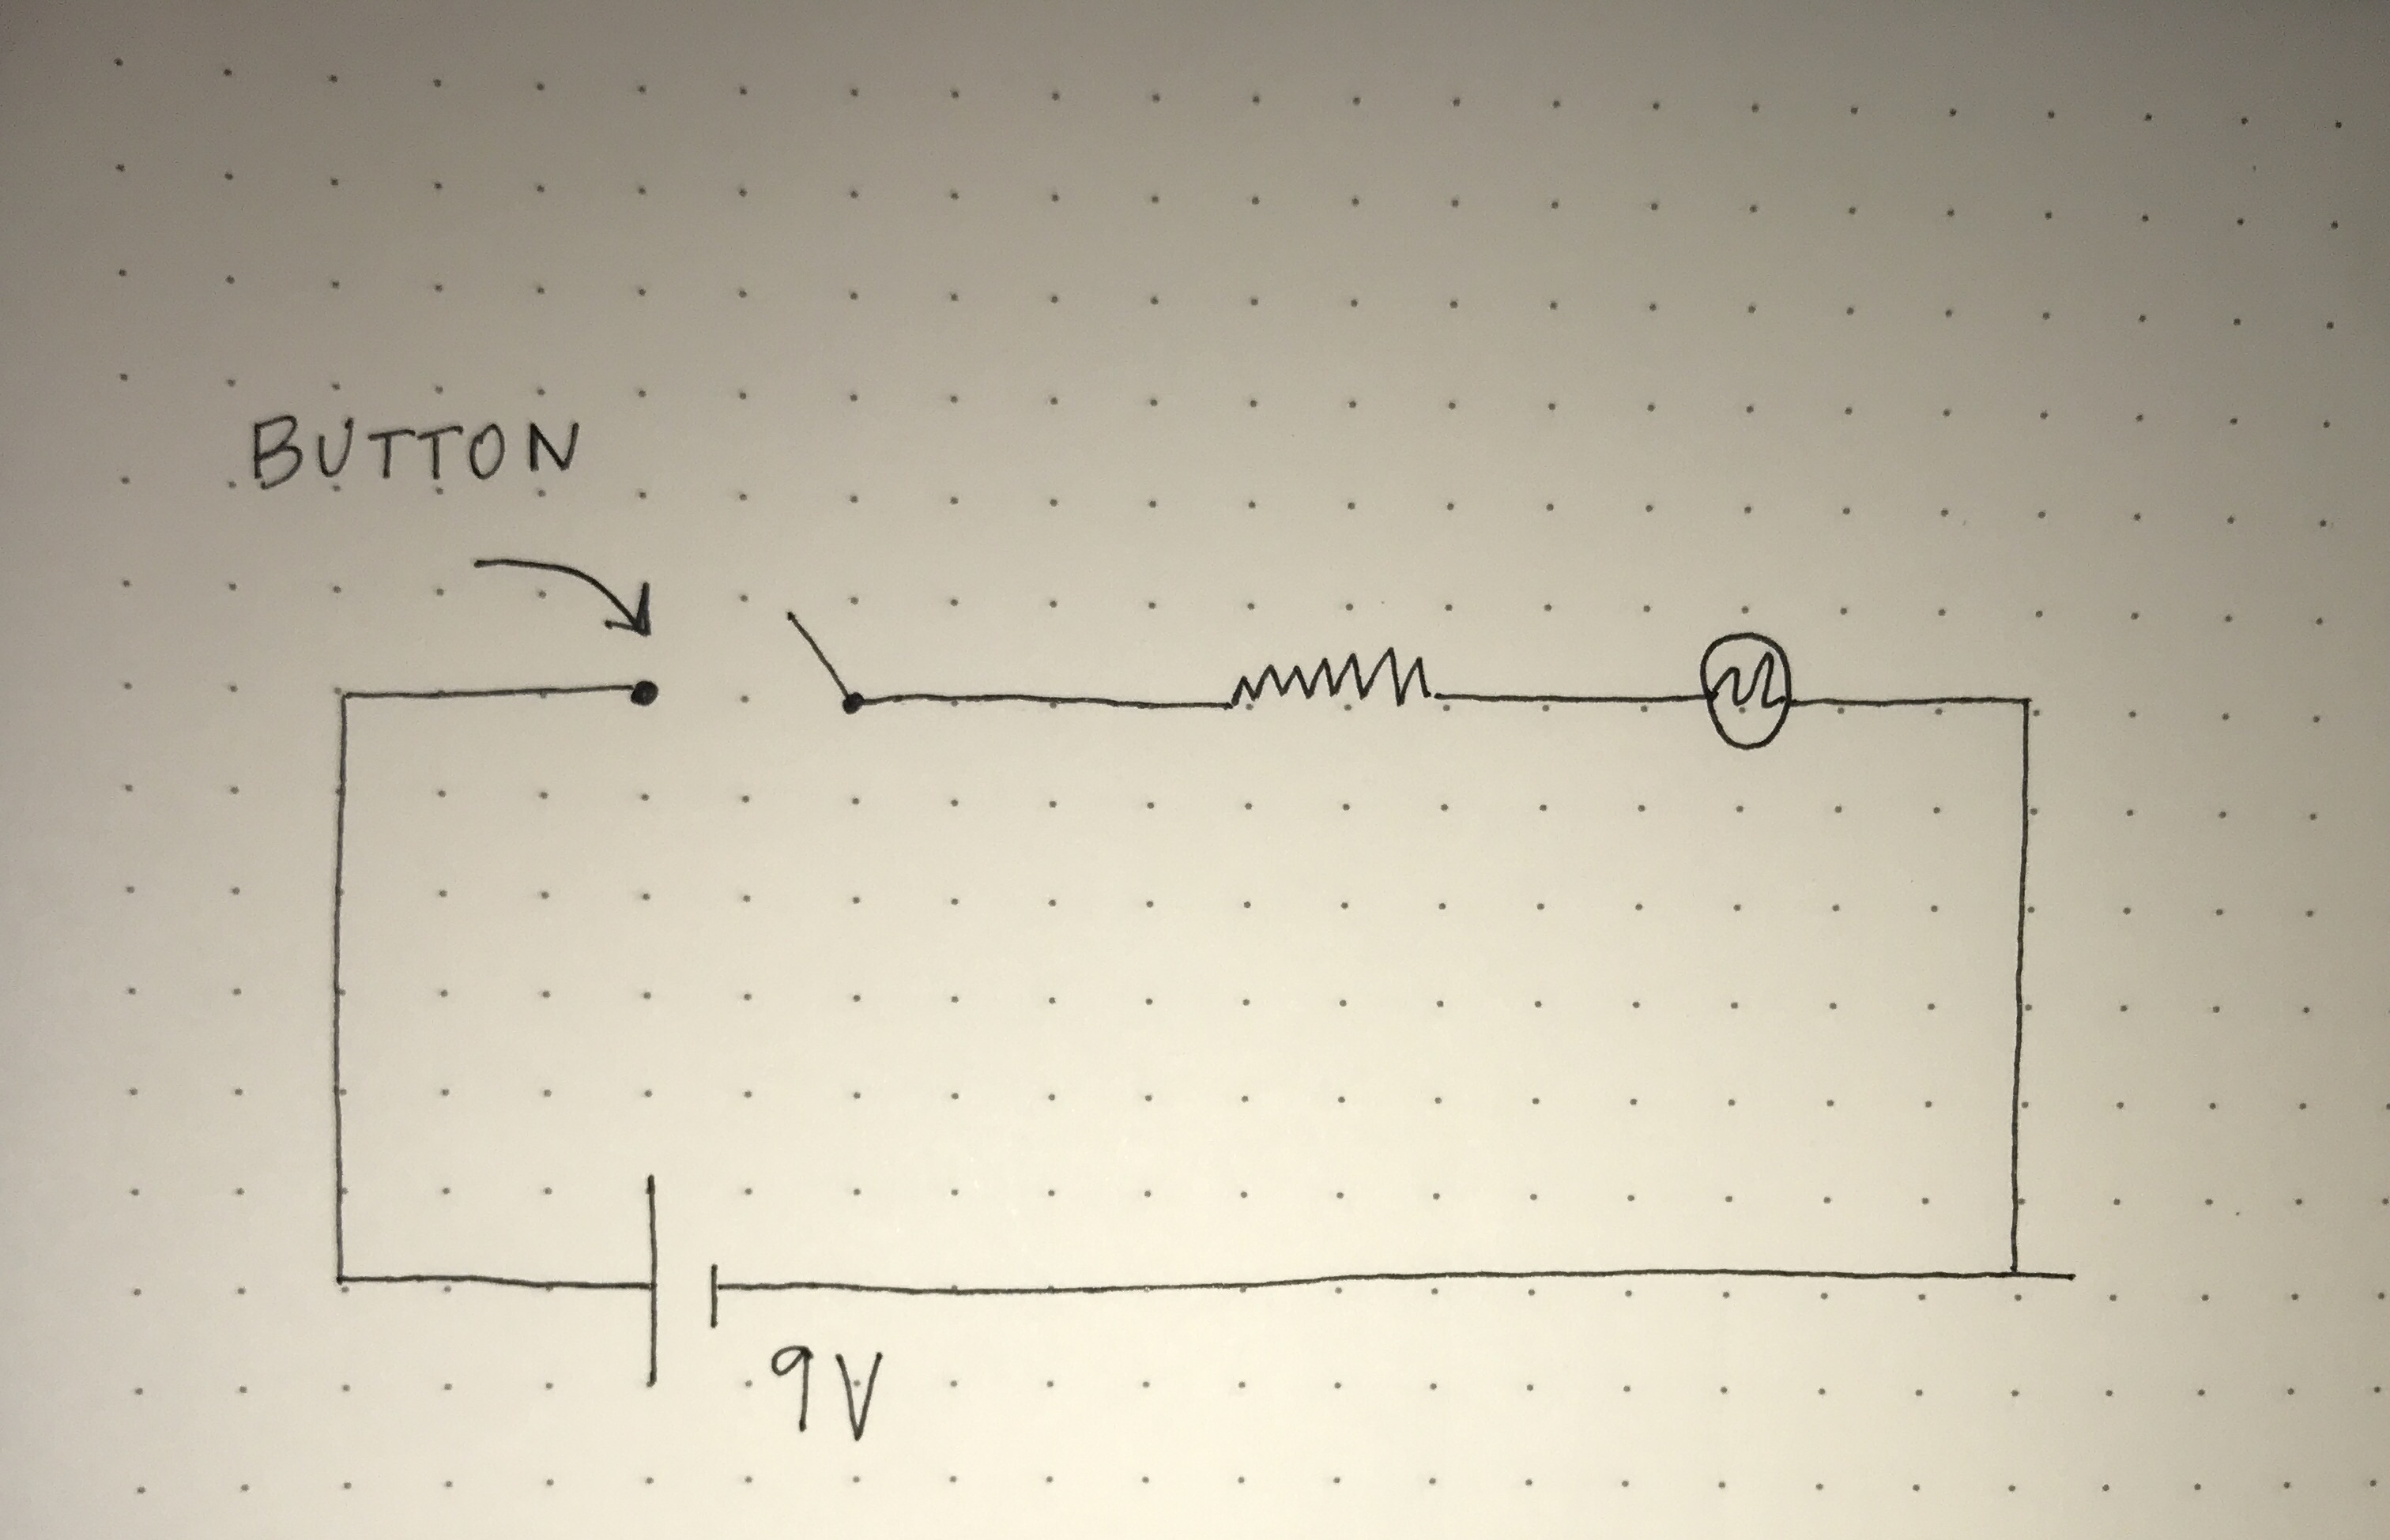 BUTTON
9V